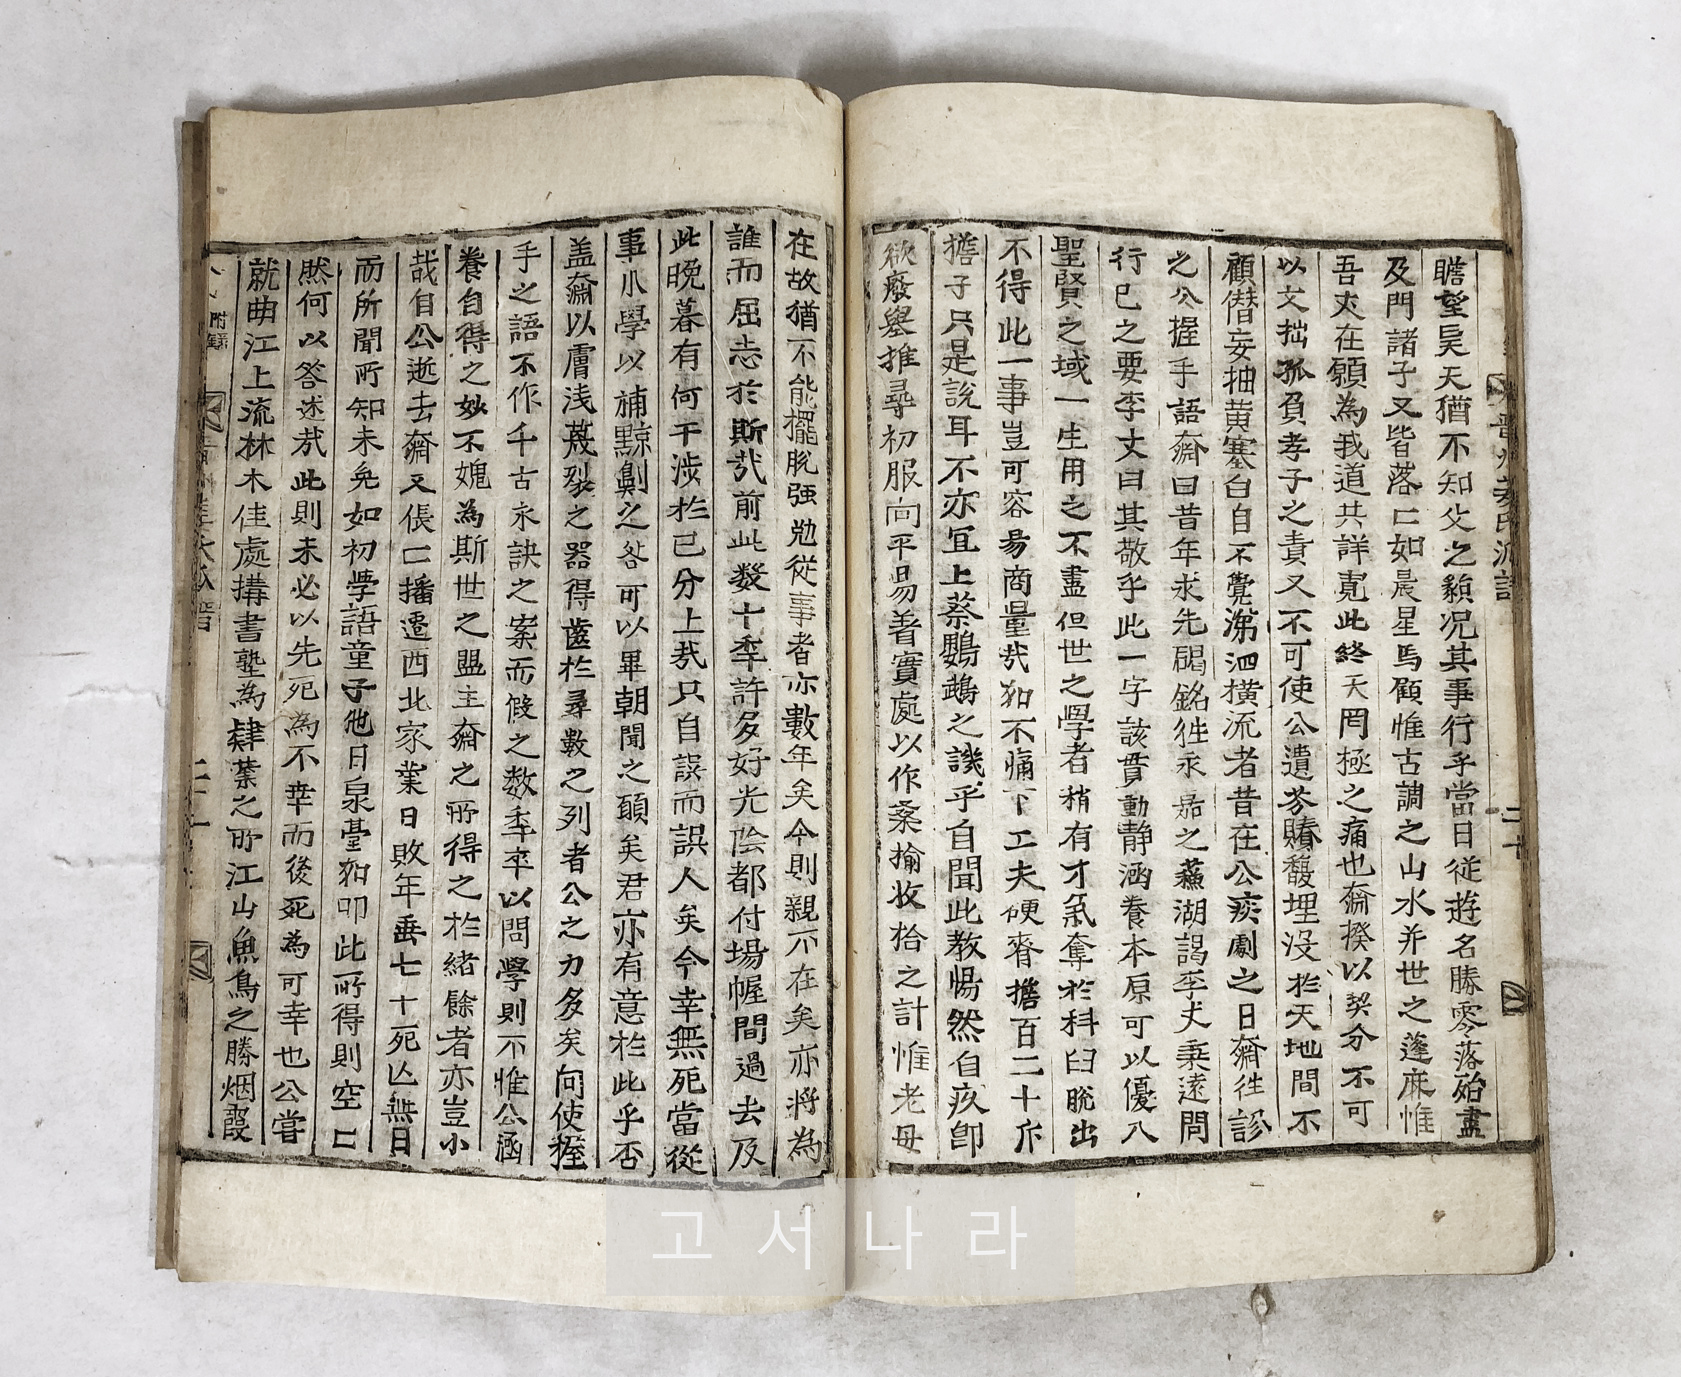 瞻望昊天猶不知父之顙况其事行乎當日從遊名勝零落殆盡
及門諸子又皆落亡如晨星焉顧惟古調之山水并世之蓬麻惟
吾丈在願為我道共詳寛此終天罔極之痛也齌揆以契分不可
以文拙孤負孝子之責又不可使公遺芬賸馥埋沒於天地間不
顧僭妄抽黃塞白自不覺涕泗橫流者昔在公疾劇之日齌徃診
之公握手語齌曰昔年求先碣銘徃永嘉之蘓湖謁李丈秉遠問
行己之要李丈曰其敬乎此一字該貫動静涵養本原可以優入
聖賢之域一生用之不盡但世之學者稍有才氣奪於科臼脫出
不得此一事豈可容易商量㢤如不痛下工夫硬脊擔百二十斤
擔子只是說耳不亦宜上蔡鸚鵡之譏乎自聞此教惕然自疚卽
欲廢舉推尋初服向平易着實處以作桑揄收拾之計惟老母
在故猶不能擺脫强勉從事者亦數年矣今則親不在矣亦將為
誰而屈志於斯㢤前此數十季許多好光陰都付場幄間過去及
此晚暮有何干涉於己分上㢤只自誤而誤人矣今幸無死當從
事小學以補黥劓之咎可以畢朝聞之願矣君亦有意於此乎否
盖齌以膚淺蔑裂之器得齒於尋數之列者公之力多矣向使握
手之語不作千古永訣之案而假之数季卒以問學則不惟公涵
養自得之妙不媿為斯世之盟主齌之所得之於緖餘者亦豈小
㢤自公逝去齌又倀亡播遷西北家業日敗年垂七十死亡無日
而所聞所知未免如初學語童子他日泉臺如叩此所得則空亡
然何以答述㢤此則未必以先死為不幸而後死為可幸也公嘗
就曲江上流林木佳處搆書塾為肄業之所江山魚鳥之勝烟霞
附錄
二十一
고서나라